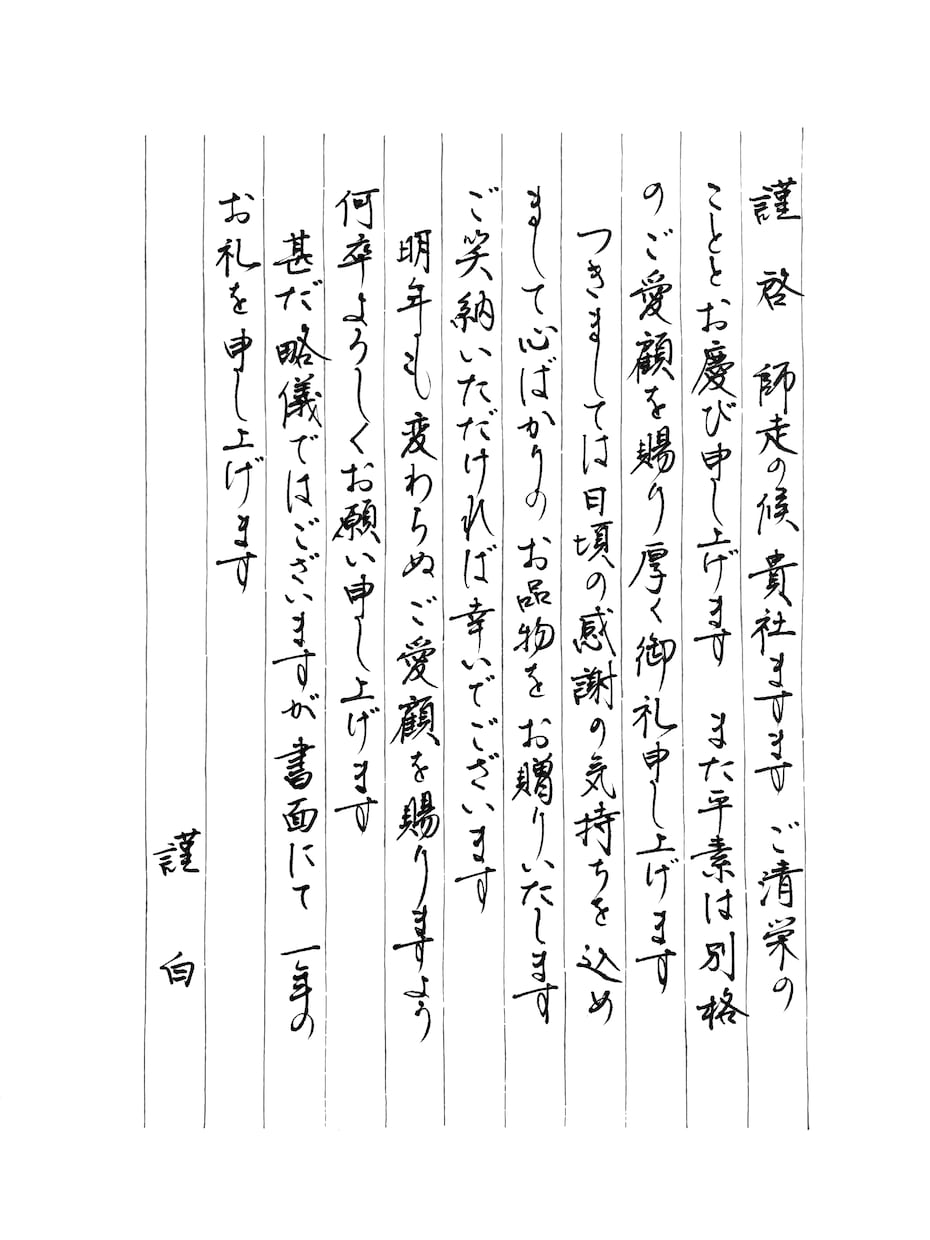 謹啓 師走の候 貴社ますます ご清栄の
こととお慶び申し上げます また平素は別格
のご愛顧を賜り厚く御礼申し上げます
つきましては日頃の感謝の気持ちを込め
まして心ばかりのお品物をお贈りいたします
ご笑納いただければ幸いでございます
明年も変わらぬご愛顧を賜りますよう
何卒よろしくお願い申し上げます
甚だ略儀ではございますが書面にて一年の
お礼を申し上げます
謹白